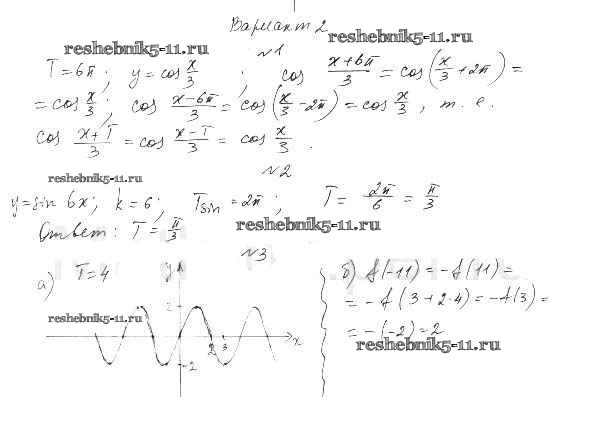 Вариант 2
reshebnik5-11.ru reshebnik5-11.ru
№1
T=6π; y=cos x/3; cos (x+6π)/3 = cos(x/3+2π) =
= cos x/3; cos (x-6π)/3 = cos(x/3-2π) = cos x/3, т. е.
cos (x+T)/3 = cos (x-T)/3 = cos x/3.
reshebnik5-11.ru
№2
y=sin 6x; k=6; T sin = 2π; T= 2π/6 = π/3
Ответ: T= π/3
reshebnik5-11.ru
№3
а) T=4
y
2
2 3 x
-2
reshebnik5-11.ru
б) f(-11) = -f(11) =
= -f(3+2·4) = -f(3) =
= -(-2) = 2
reshebnik5-11.ru